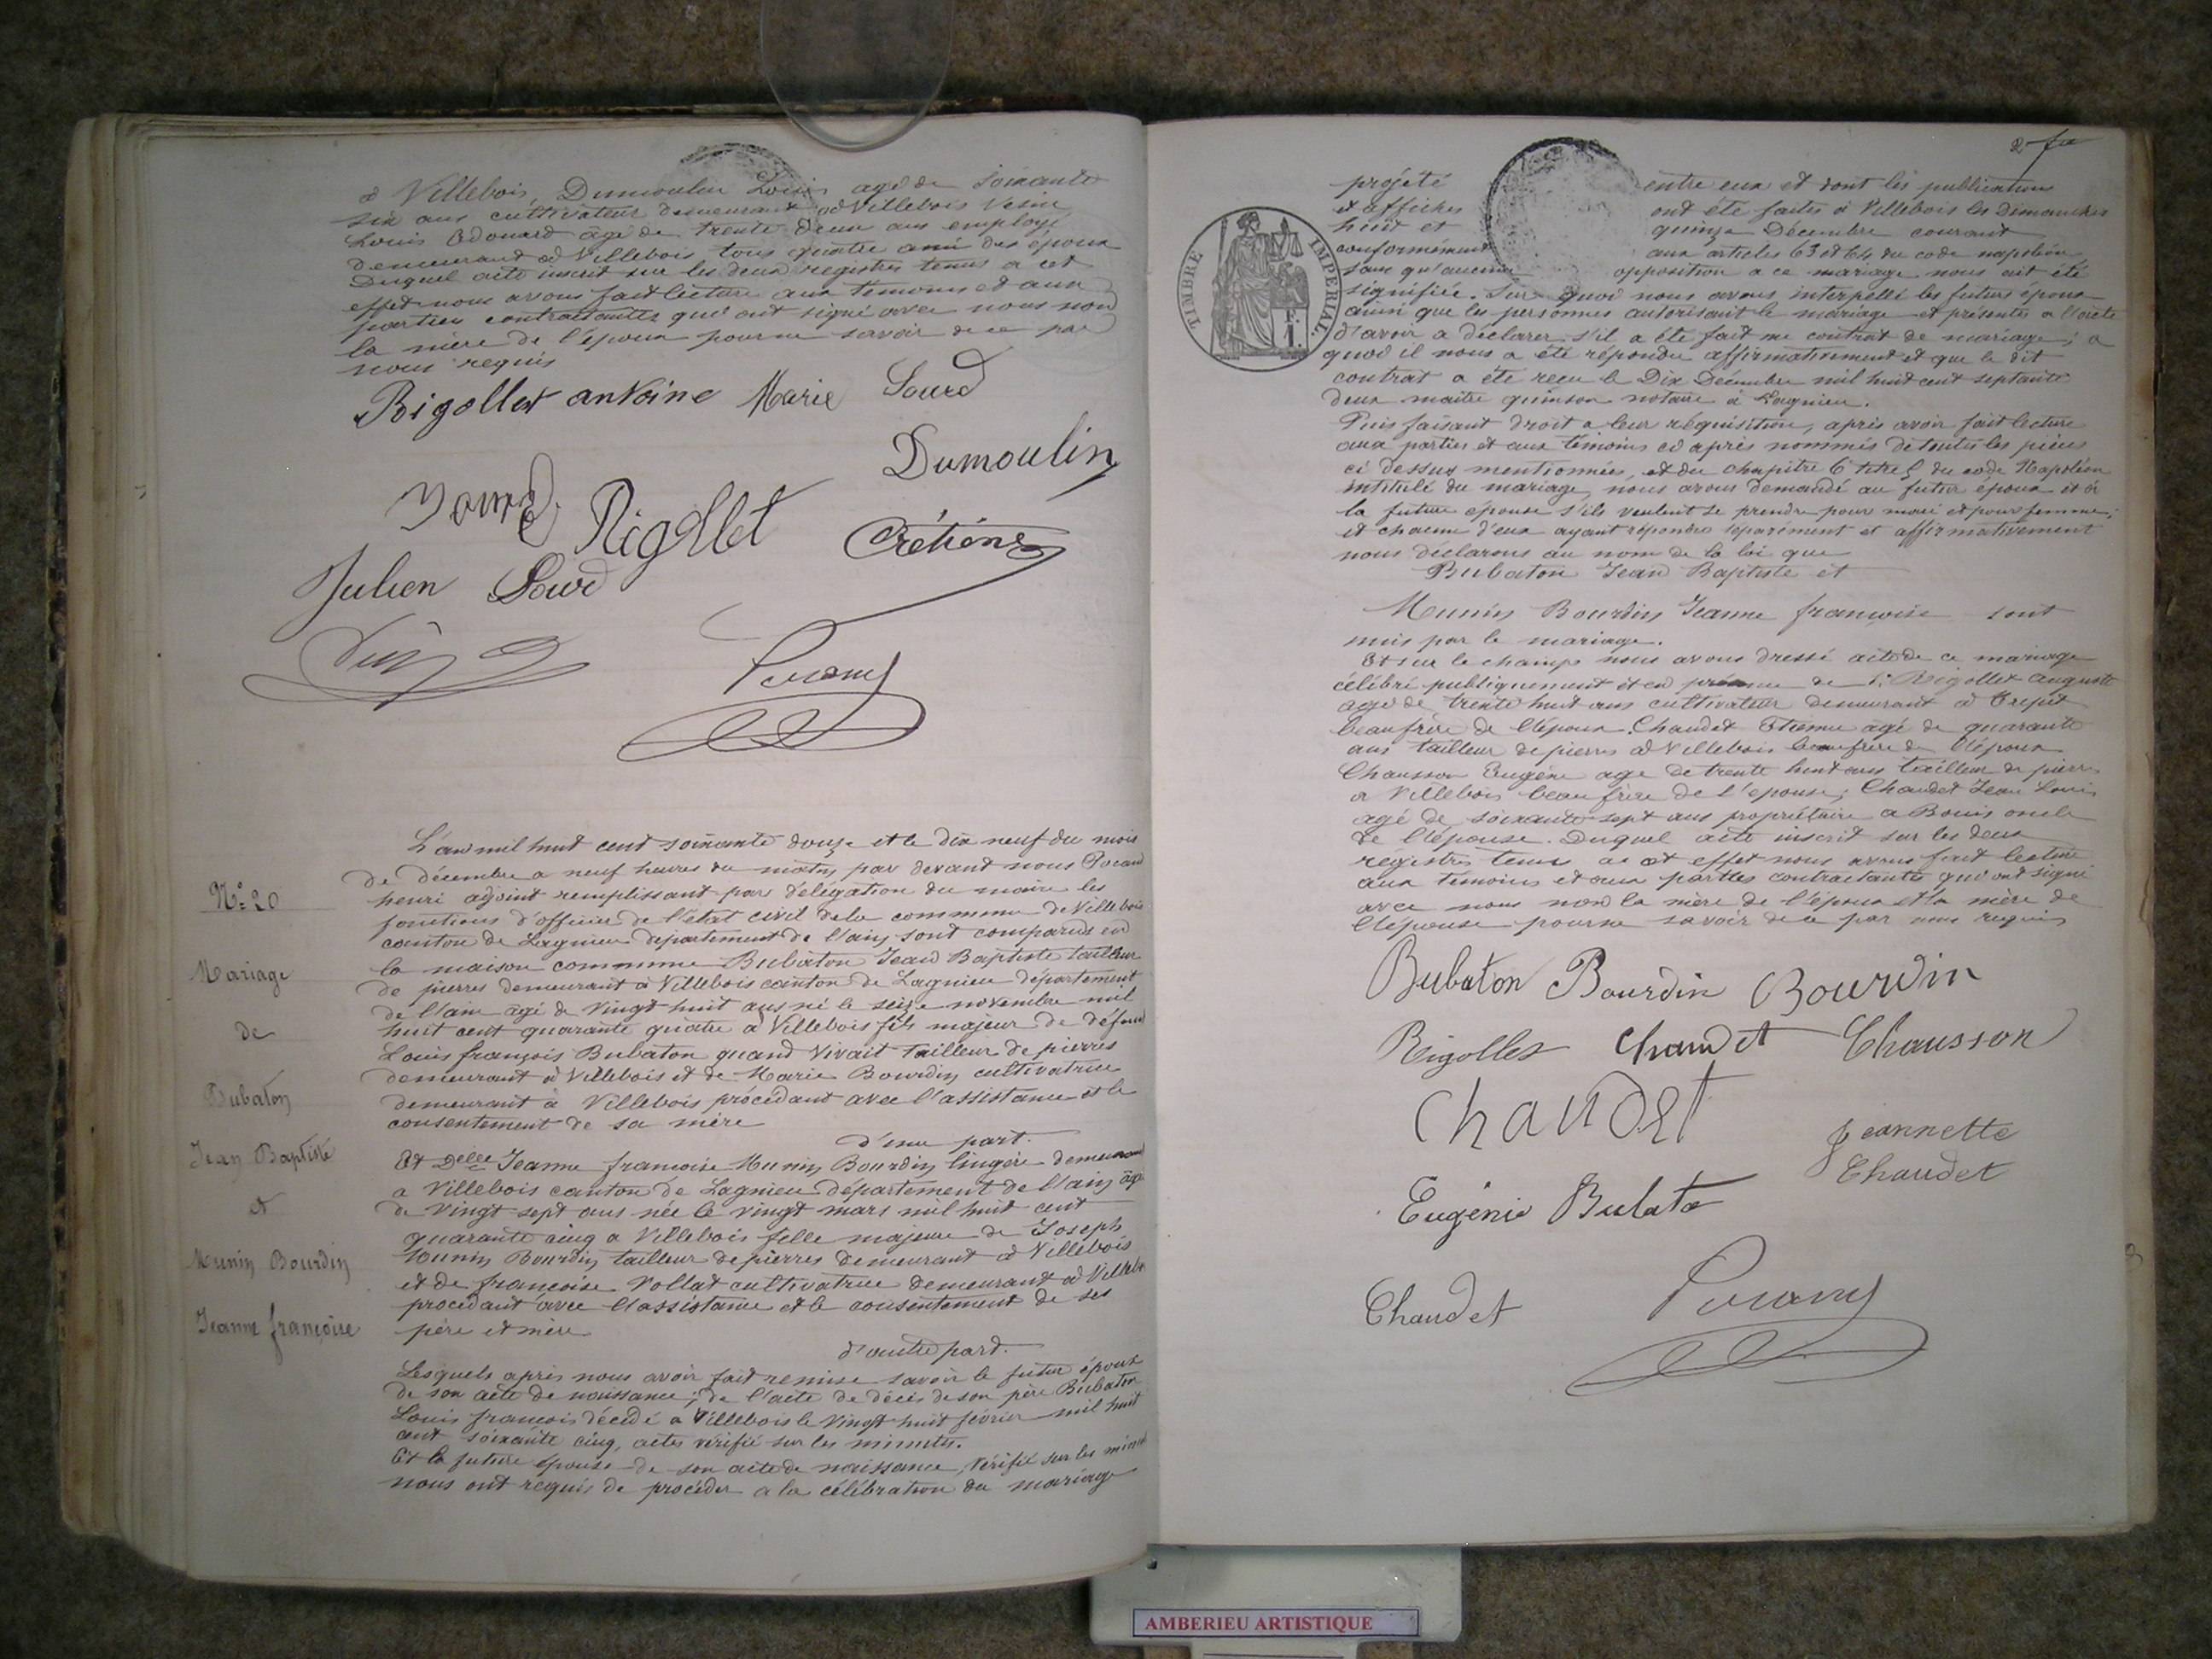 à Villebois, Dumoulin Louis agé de soixante
six ans cultivateur demeurant à Villebois
Louis Edouard âgé de trente deux ans employé
demeurant à Villebois tous quatre amis des époux
Duquel acte inscrit sur les deux registres tenus à cet
effet nous avons fait lecture aux témoins et aux
parties contractantes qui ont signé avec nous non
la mère de l'époux pour ne savoir de ce par
nous requis
Rigollet antoine Marie Sourd
Dumoulin
Rigollet
Crétiéne
Julien Sourd
L'an mil huit cent soixante douze et le dix neuf du mois
de décembre a neuf heures du matin par devant nous
henri adjoint remplissant par délégation du maire les
fonctions d'officier de l'état civil de la commune de Villebois
canton de Lagnieu département de l'ain, sont comparus en
la maison commune Bubaton Jean Baptiste tailleur
de pierres demeurant à Villebois canton de Lagnieu département
de l'ain âgé de vingt huit ans né le seize novembre mil
huit cent quarante quatre à Villebois fils majeur de défunt
Louis françois Bubaton quand vivait tailleur de pierres
demeurant à Villebois et de Marie Bourdin cultivatrice
demeurant à Villebois procédant avec l'assistance et le
consentement de sa mère
d'une part.
Et Delle Jeanne francoise Munin Bourdin lingère demeurant
a Villebois canton de Lagnieu département de l'ain âgée
de vingt sept ans née le vingt mars mil huit cent
quarante cinq a Villebois fille majeure de Joseph
Munin Bourdin tailleur de pierres demeurant à Villebois
et de francoise Vollat cultivatrice demeurant à Villebois
procédant avec l'assistance et le consentement de ses
père et mère
d'autre part.
Lesquels après nous avoir fait remise savoir le futur époux
de son acte de naissance; de l'acte de décès de son père Bubaton
Louis françois décédé a Villebois le vingt huit février mil huit
cent soixante cinq, actes vérifié sur les minutes.
Et la future épouse de son acte de naissance, vérifié sur les minutes
nous ont requis de procéder a la célébration du mariage
N° 20
Mariage
de
Bubaton
Jean Baptiste
et
Munin Bourdin
Jeanne françoise
projeté entre eux et dont les publications
et affiches ont été faites à Villebois les Dimanches
huit et quinze Décembre courant
conformément aux articles 63 et 64 du code napoléon
sans qu'aucune opposition a ce mariage nous ait été
signifiée. Sur quoi nous avons interpellé les futurs époux
ainsi que les personnes autorisant le mariage et présentes a l'acte
d'avoir a déclarer s'il a été fait un contrat de mariage; a
quoi il nous a été répondu affirmativement et que le dit
contrat a été reçu le Dix Décembre mil huit cent septante
deux maitre quinson notaire à Lagnieu.
Puis faisant droit a leur réquisition, après avoir fait lecture
aux parties et aux témoins ci après nommés de toutes les pièces
ci dessus mentionnées, et du chapitre 6 titre 5 du code Napoléon
intitulé du mariage, nous avons demandé au futur époux et à
la future épouse s'ils veulent se prendre pour mari et pour femme;
et chacun d'eux ayant répondu séparément et affirmativement
nous déclarons au nom de la loi que
Bubaton Jean Baptiste et
Munin Bourdin Jeanne francoise sont
unis par le mariage.
Et sur le champ nous avons dressé acte de ce mariage
célébré publiquement et en présence de Rigollet Auguste
agé de trente huit ans cultivateur demeurant à
beau frère de l'époux, Chaudet Etienne âgé de quarante
ans tailleur de pierres à Villebois beau frère de l'époux
Chausson Eugène age de trente huit ans tailleur de pierres
a Villebois beau frère de l'épouse; Chaudet Jean Louis
agé de soixante sept ans propriétaire a Bouis oncle
de l'épouse. Duquel acte inscrit sur les deux
régistres tenus a cet effet nous avons fait lecture
aux témoins et aux parties contractantes qui ont signé
avec nous non la mère de l'époux et la mère de
l'épouse pour ne savoir de ce par nous requis
Bubaton Bourdin Bourdin
Rigollet Chaudet Chausson
Chaudet
Jeannette
Chaudet
Eugénie Bubato
Chaudet
TIMBRE IMPERIAL.
1 F.
AMBERIEU ARTISTIQUE